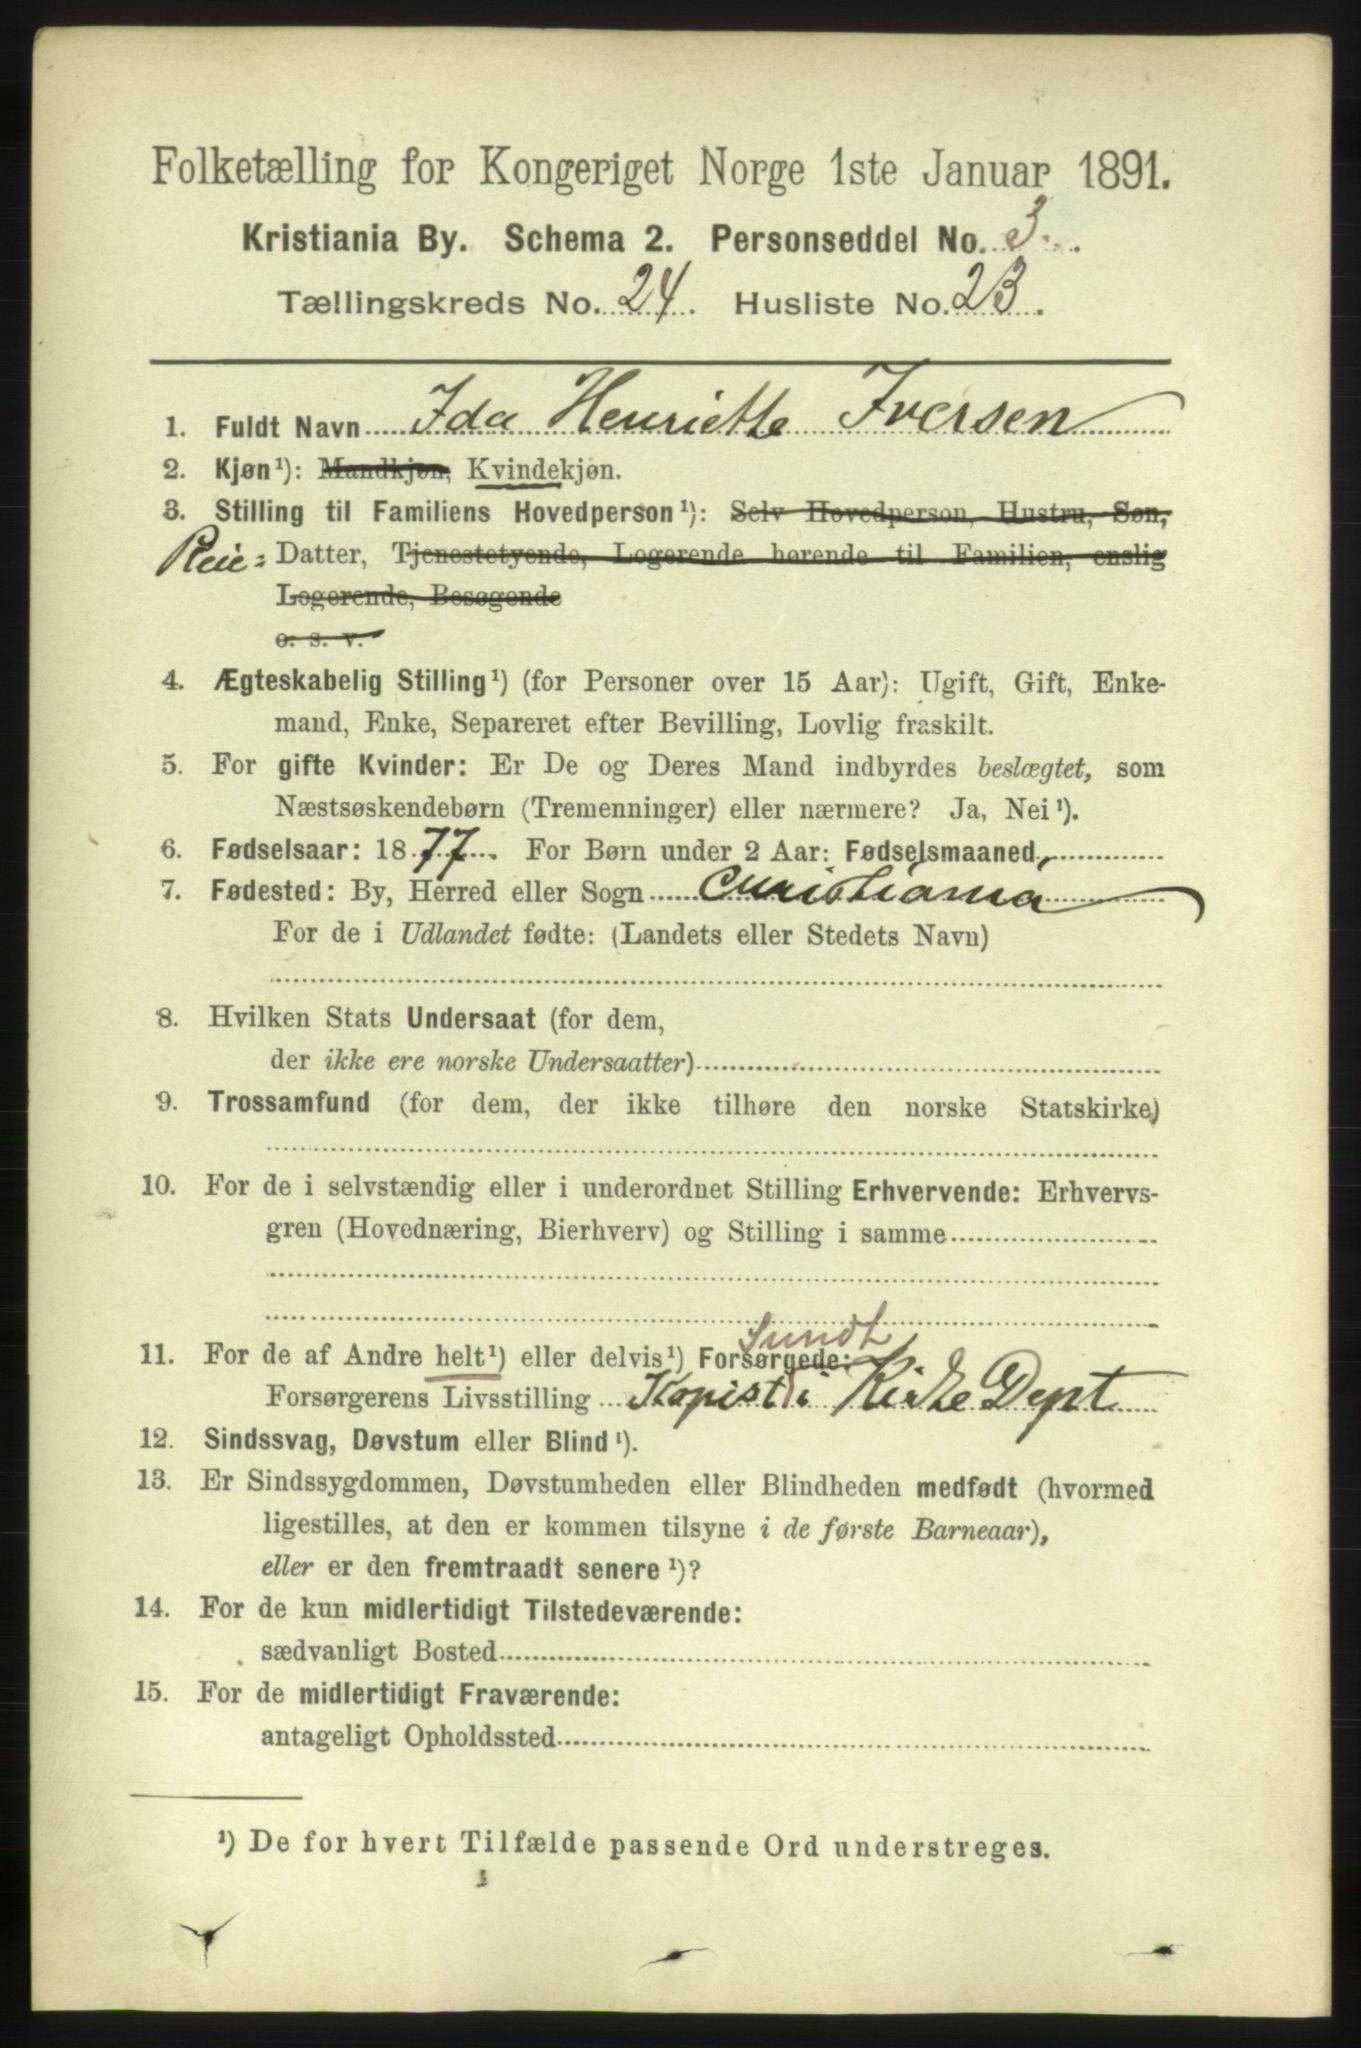 Folketælling for Kongeriget Norge 1ste Januar 1891.
Kristiania By. Schema 2. Personseddel No. 3.
Tællingskreds No. 24. Husliste No. 23.
1. Fuldt Navn Ida Henriette Iversen
2. Kjøn¹): Mandkjøn, Kvindekjøn.
3. Stilling til Familiens Hovedperson¹): Selv Hovedperson, Hustru, Søn,
Pleie= Datter, Tjenestetyende, Logerende hørende til Familien, enslig
Logerende, Besøgende
o. s. v.
4. Ægteskabelig Stilling¹) (for Personer over 15 Aar): Ugift, Gift, Enke-
mand, Enke, Separeret efter Bevilling, Lovlig fraskilt.
5. For gifte Kvinder: Er De og Deres Mand indbyrdes beslægtet, som
Næstsøskendebørn (Tremenninger) eller nærmere? Ja, Nei¹).
6. Fødselsaar: 1877. For Børn under 2 Aar: Fødselsmaaned
7. Fødested: By, Herred eller Sogn Christiania
For de i Udlandet fødte: (Landets eller Stedets Navn)
8. Hvilken Stats Undersaat (for dem,
der ikke ere norske Undersaatter)
9. Trossamfund (for dem, der ikke tilhøre den norske Statskirke)
10. For de i selvstændig eller i underordnet Stilling Erhvervende: Erhvervs-
gren (Hovednæring, Bierhverv) og Stilling i samme
Sundt
11. For de af Andre helt¹) eller delvis¹) Forsørgede:
Forsørgerens Livsstilling Kopist i Kirke Dept
12. Sindssvag, Døvstum eller Blind¹).
13. Er Sindssygdommen, Døvstumheden eller Blindheden medfødt (hvormed
ligestilles, at den er kommen tilsyne i de første Barneaar),
eller er den fremtraadt senere¹)?
14. For de kun midlertidigt Tilstedeværende:
sædvanligt Bosted
15. For de midlertidigt Fraværende:
antageligt Opholdssted
¹) De for hvert Tilfælde passende Ord understreges.